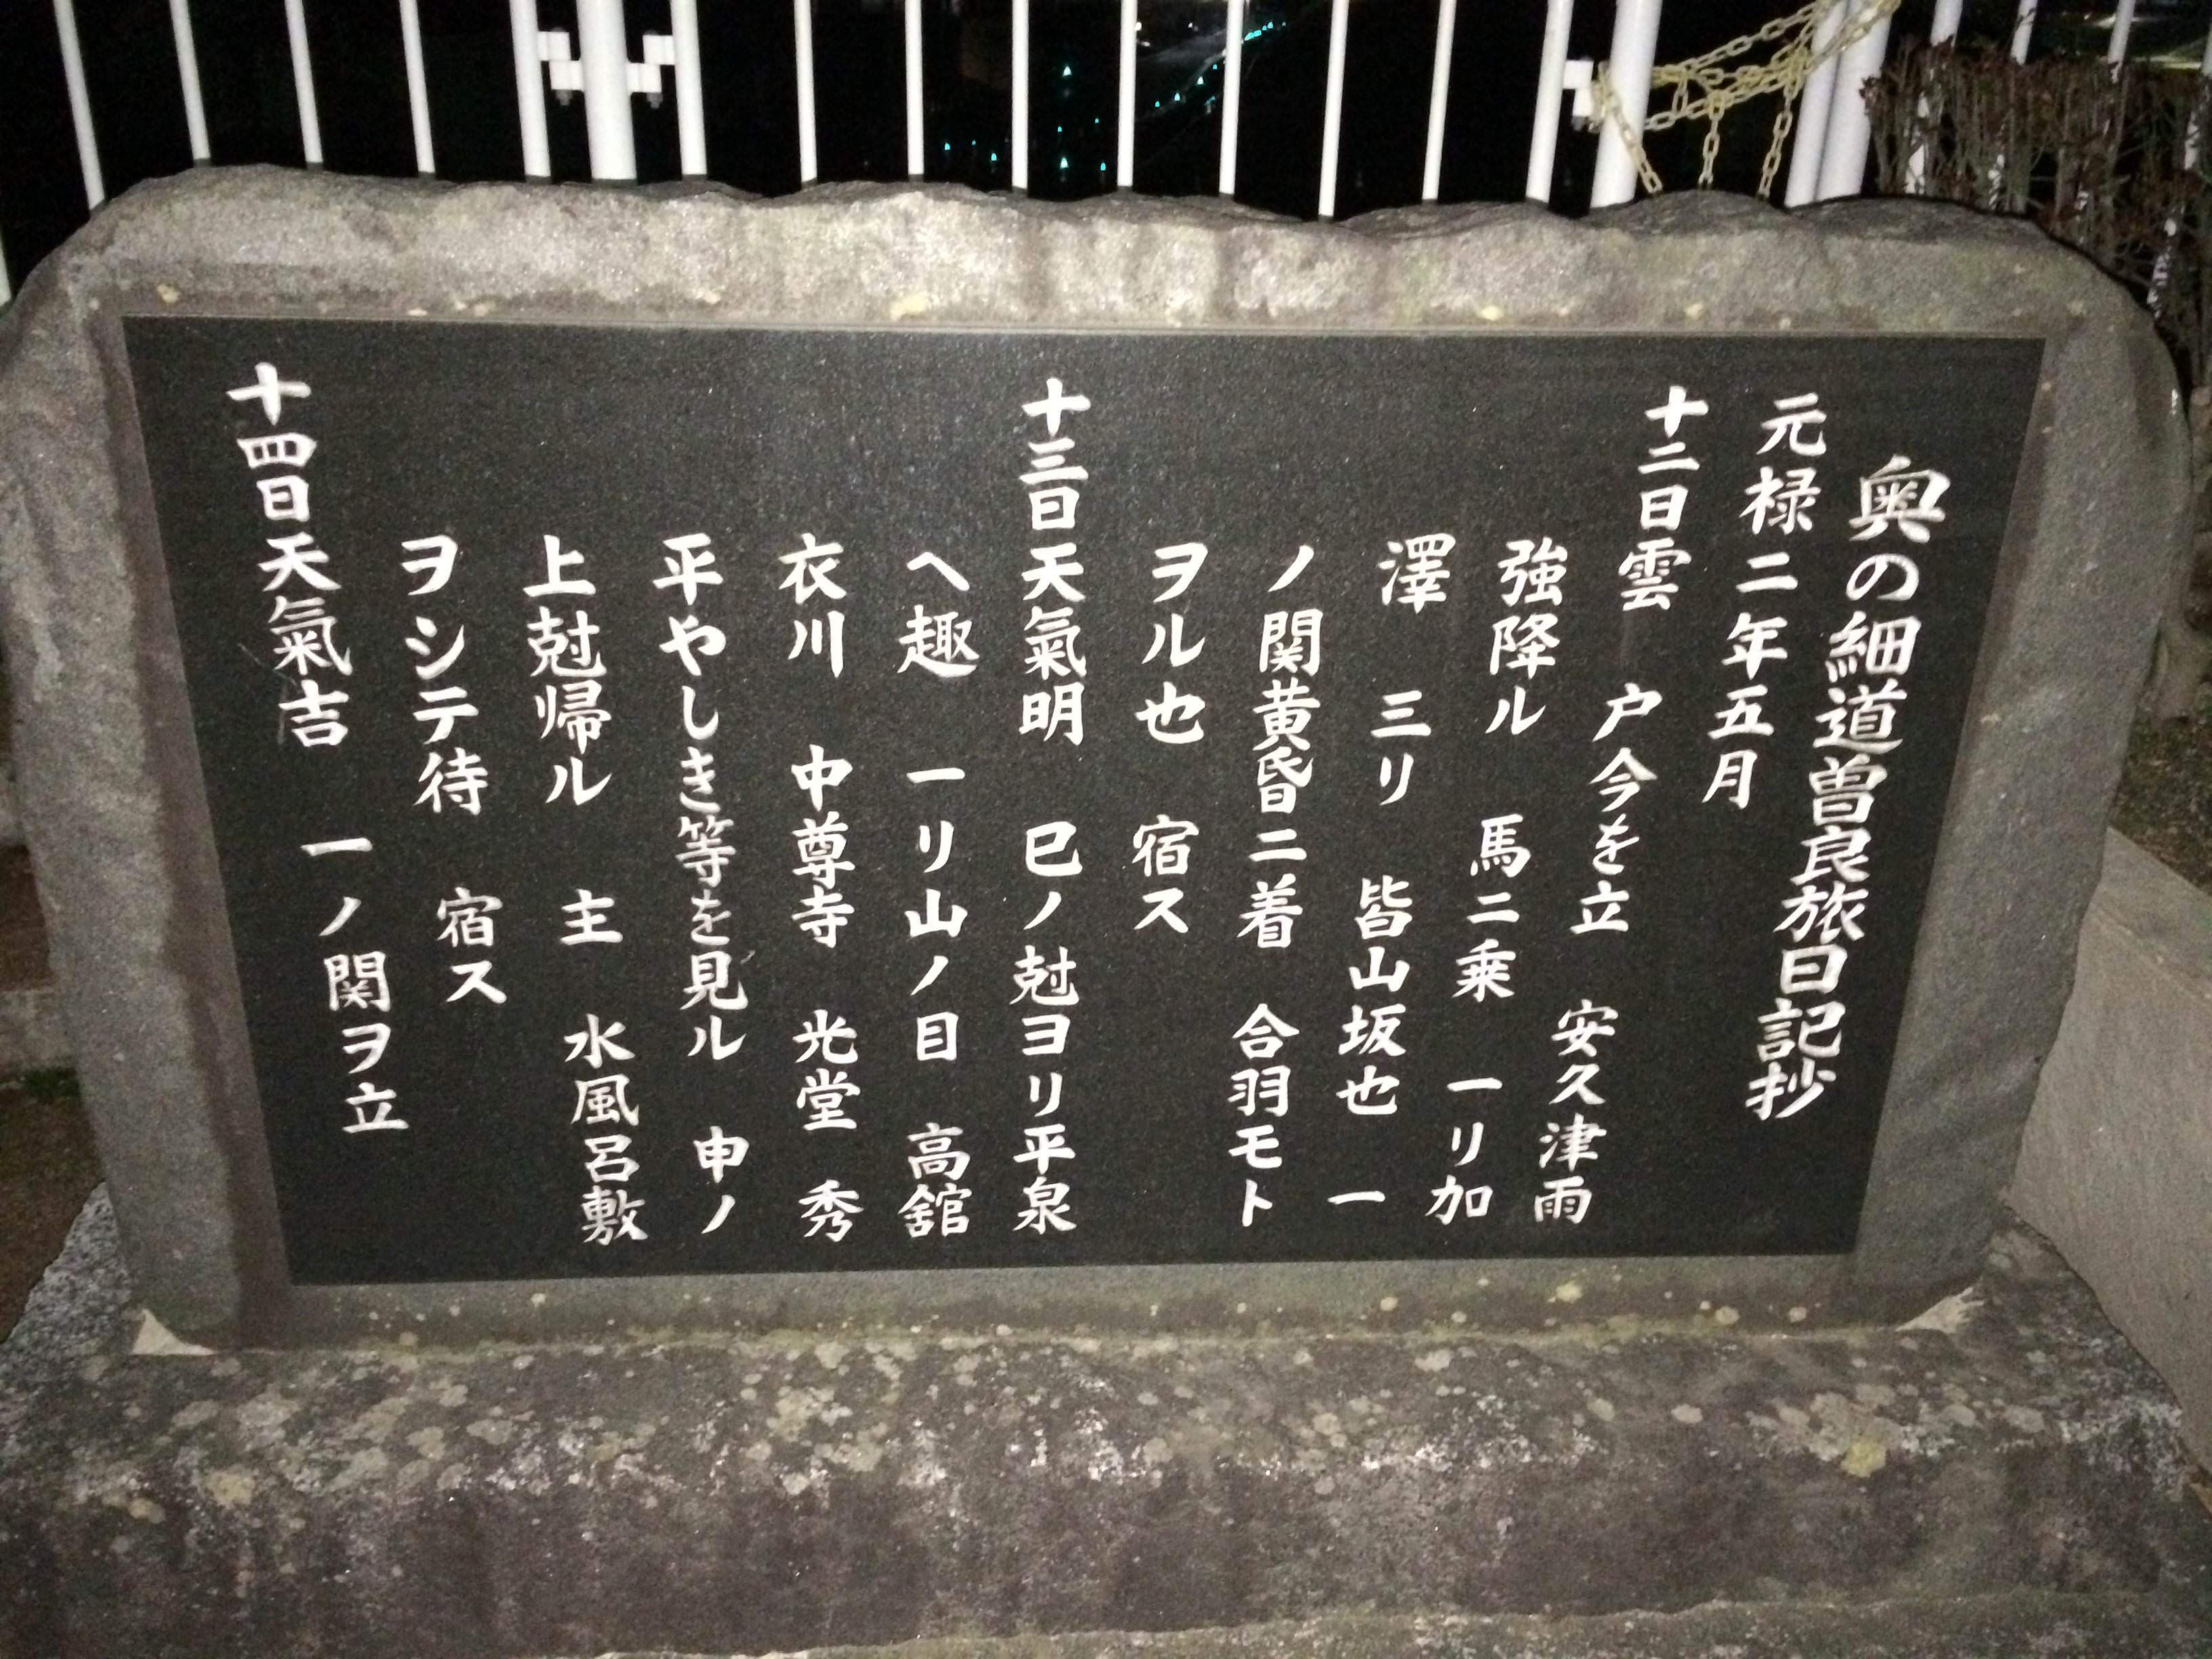 奥の細道曽良旅日記抄
元禄二年五月
十二日雲　戸今を立　安久津雨
強降ル　馬ニ乗　一リ加
澤　三リ　皆山坂也　一
ノ関黄昏ニ着　合羽モト
ヲル也　宿ス
十三日天氣明　巳ノ尅ヨリ平泉
へ趣　一リ山ノ目　高舘
衣川　中尊寺　光堂　秀
平やしき等を見ル　申ノ
上尅帰ル　主　水風呂敷
ヲシテ待　宿ス
十四日天氣吉　一ノ関ヲ立